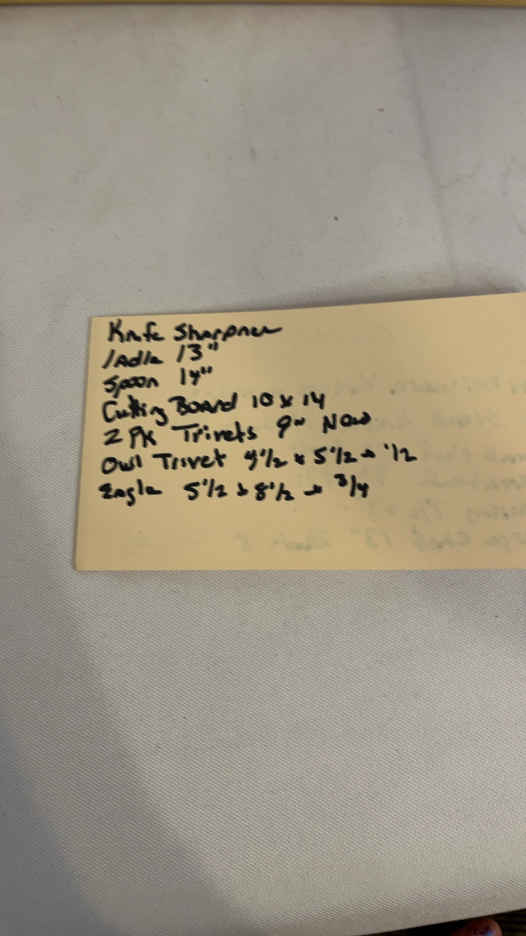 Knife Sharpner
lAdle 13"
Spoon 14"
Cutting Board 10 x 14
2 PK Trivets 9" New
Owl Trivet 9 1/2 x 5 1/2 x 1/2
Eagle 5 1/2 x 8 1/2 x 3/4